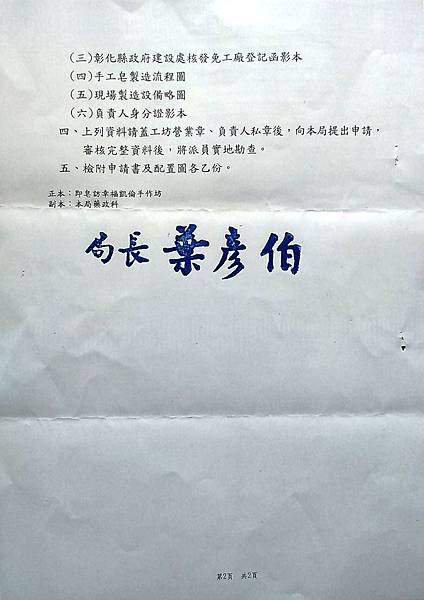 (三)彰化縣政府建設處核發免工廠登記函影本
(四)手工皂製造流程圖
(五)現場製造設備略圖
(六)負責人身分證影本
四、上列資料請蓋工坊營業章、負責人私章後，向本局提出申請，
審核完整資料後，將派員實地勘查。
五、檢附申請書及配置圖各乙份。
正本：即皂訪幸福凱倫手作坊
副本：本局藥政科
局長 葉彥伯
第2頁 共2頁